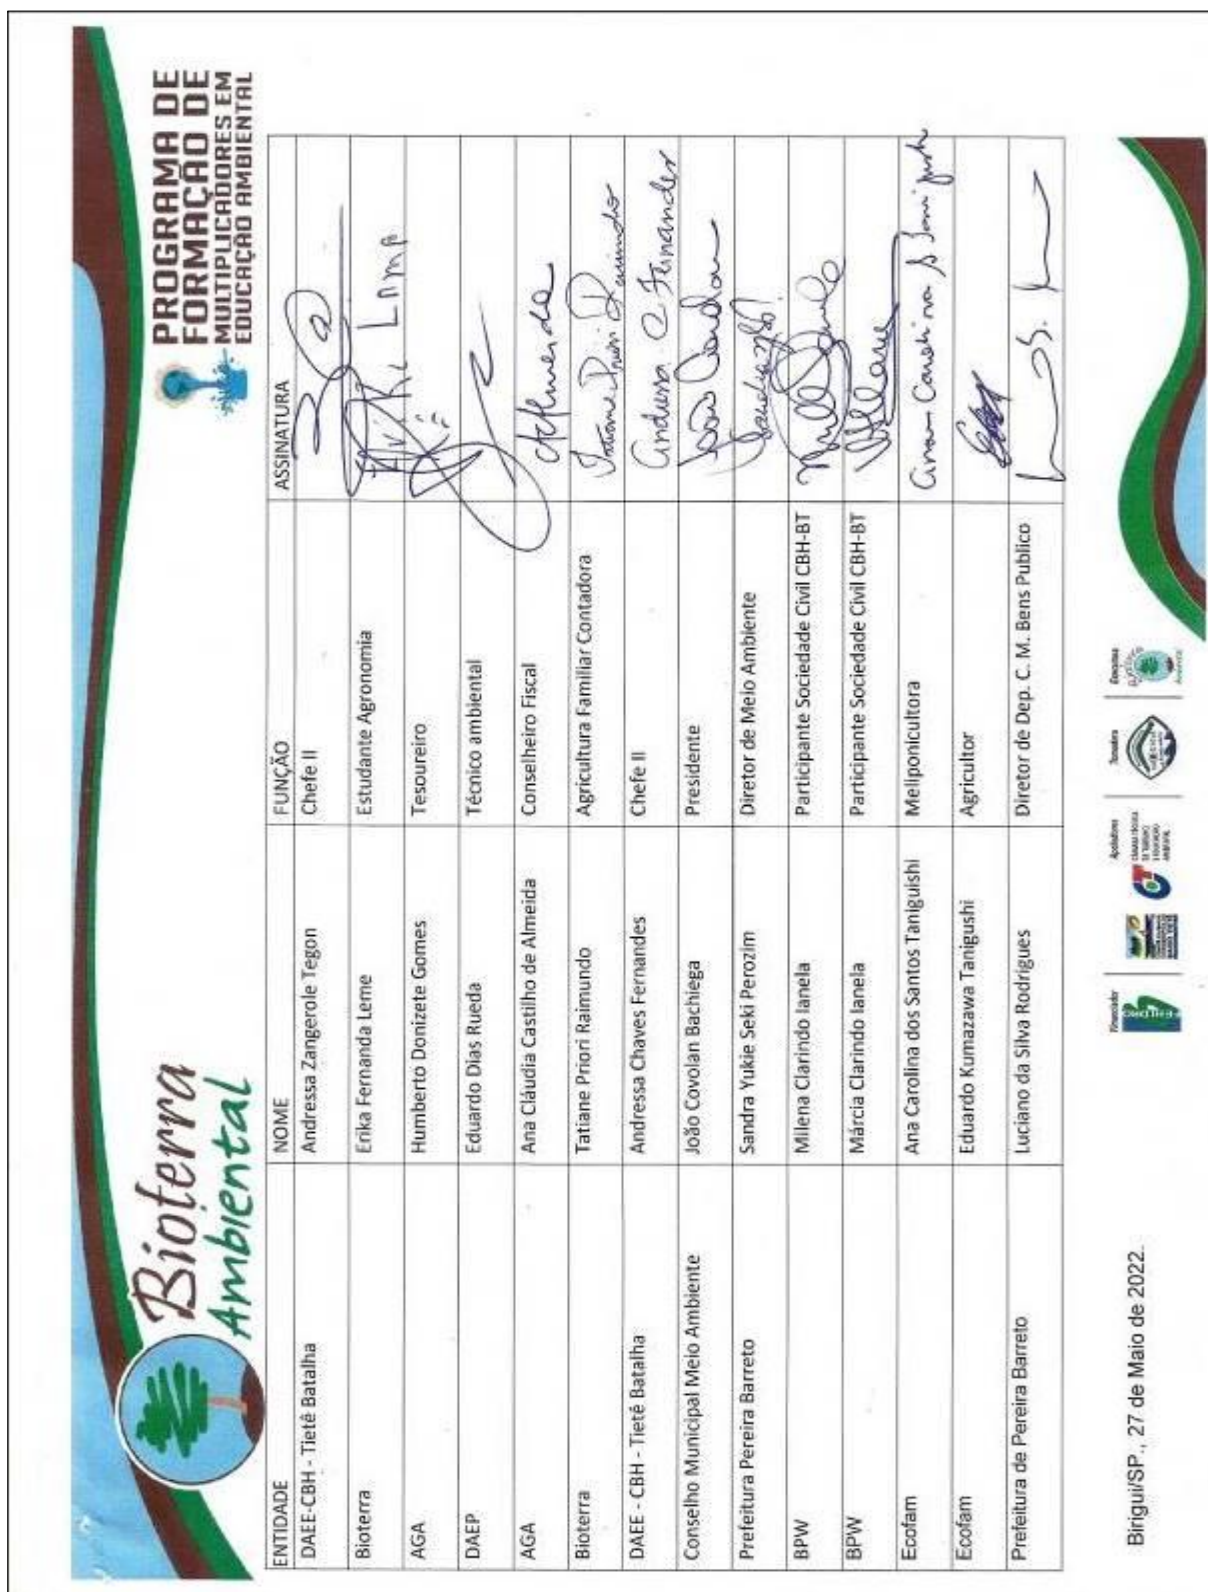 Bioterra
Ambiental
PROGRAMA DE
FORMAÇÃO DE
MULTIPLICADORES EM
EDUCAÇÃO AMBIENTAL
ENTIDADE NOME FUNÇÃO ASSINATURA
DAEE-CBH - Tietê Batalha Andressa Zangerole Tegon Chefe II
Bioterra Erika Fernanda Leme Estudante Agronomia
AGA Humberto Donizete Gomes Tesoureiro
DAEP Eduardo Dias Rueda Técnico ambiental
AGA Ana Cláudia Castilho de Almeida Conselheiro Fiscal Almeida
Bioterra Tatiane Priori Raimundo Agricultura Familiar Contadora Tatiane Priori Raimundo
DAEE - CBH - Tietê Batalha Andressa Chaves Fernandes Chefe II Andressa C Fernandes
Conselho Municipal Meio Ambiente João Covolan Bachiega Presidente João
Prefeitura Pereira Barreto Sandra Yukie Seki Perozim Diretor de Meio Ambiente
BPW Milena Clarindo Ianela Participante Sociedade Civil CBH-BT
BPW Márcia Clarindo Ianela Participante Sociedade Civil CBH-BT
Ecofam Ana Carolina dos Santos Taniguishi Meliponicultora Carolina
Ecofam Eduardo Kumazawa Tanigushi Agricultor
Prefeitura de Pereira Barreto Luciano da Silva Rodrigues Diretor de Dep. C. M. Bens Publico
Birigui/SP., 27 de Maio de 2022.
Financiador Apoiadores Tomadora Executora
FEHIDRO